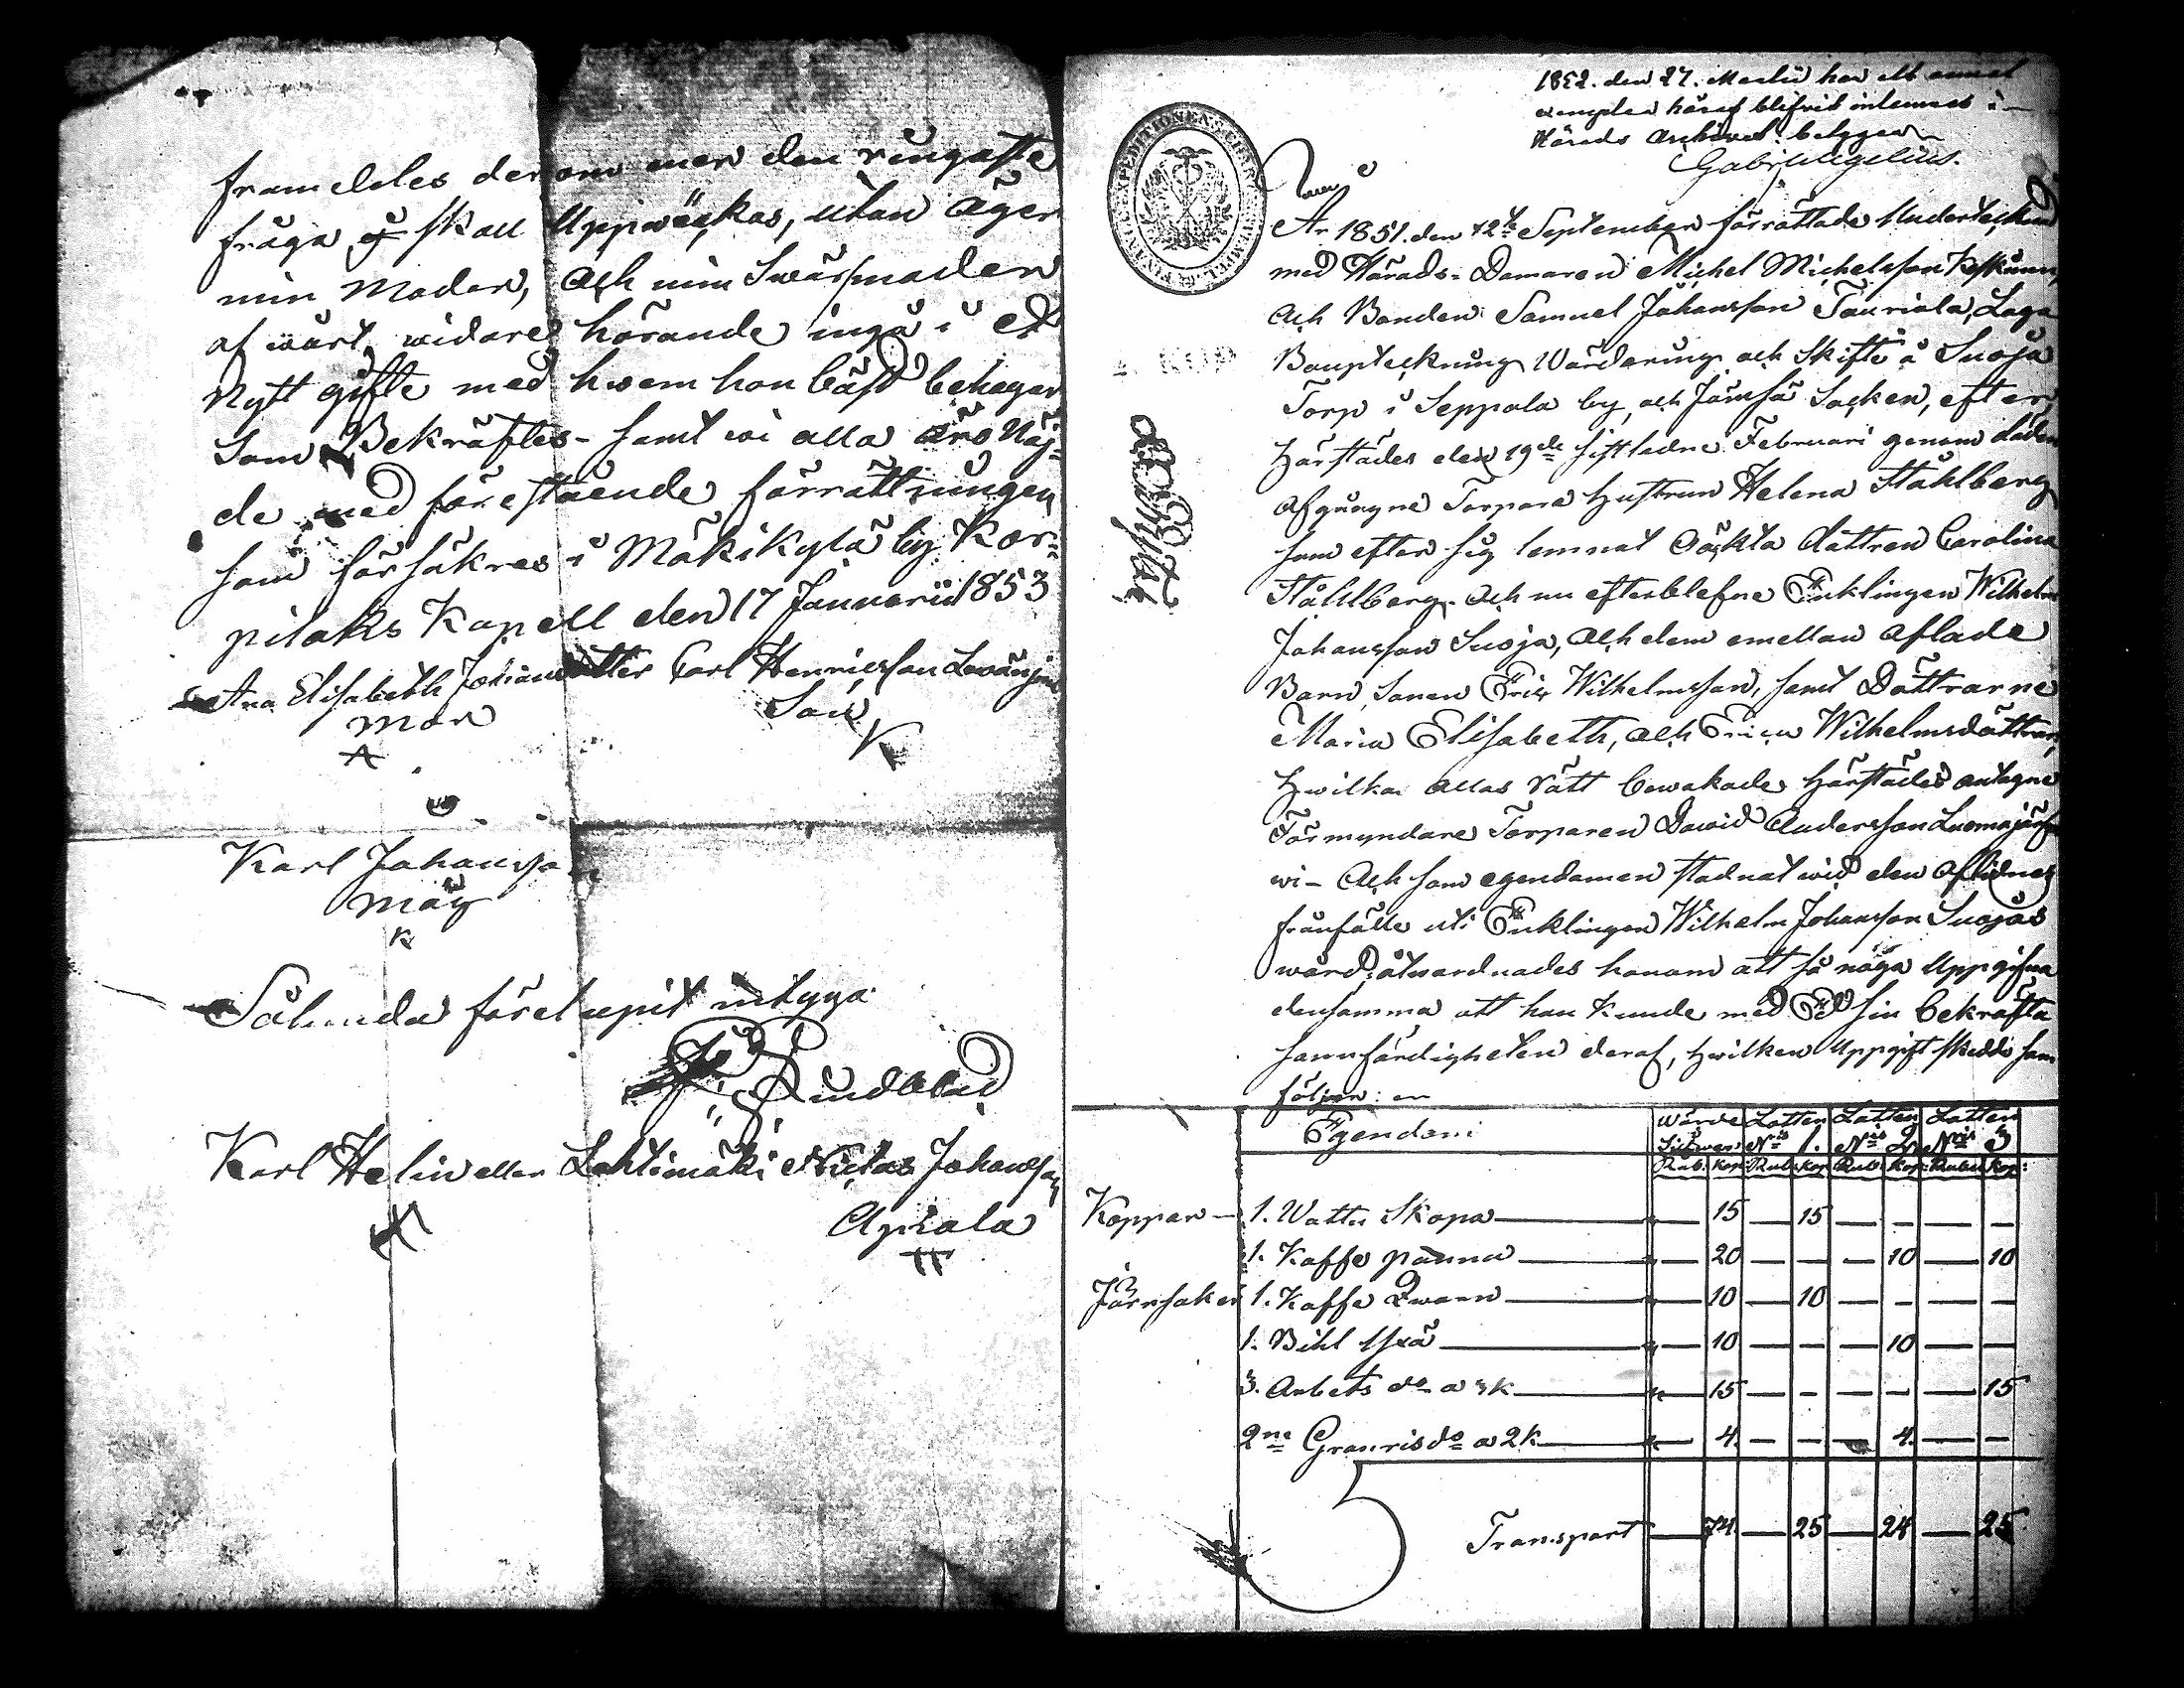 framdeles der om mer den ringaste
fråga ej skall Uppwäckas, utan äger
min Moder, och min Swärmoder
af wårt widare hörande ingå i Et
Nytt gifte med hwem hon bäst behagar
Som Bekräftes - samt wi alla äro Nöj-
de med förestående förrättningen
som försäkres i Mäkikylä by Kor-
pilaks Kapell den 17 Januarii 1853
Ana Elisabeth Johansdotter Carl Henricsson
Mor Son
Karl Johansson
Måg
Sålunda förelupit intyga
Lindblad
Karl Helin eller Lahtimäki Niclas Johansson
1852. den 27. Martii har ett annat
exemplar häraf blifvit inlemnat i
Härads Archivet: betygar
FINANCE EXPEDITIONENS CHARTÆ STEMPEL
År 1851. den 12te September förrättade Undertecknad
med Härads-Domaren Michel Michelsson
och Bonden Samuel Johansson Tauriala, Laga
KOP
Boupteckning Wärdering och Skifte å Suoja
Torp i Seppola by och Jämsä Socken, efter
härstädes den 19de sistledne Februari genom döden
afgångne Torpare hustrun Helena Ståhlberg
som efter sig lemnat Oäkta dottren Carolina
Ståhlberg och nu efterblefne Enklingen Wilhelm
Johansson Suoja, och dem emellan aflade
Barn, Sonen Eric Wilhelmsson, samt Döttrarne
Maria Elisabeth, och Erica Wilhelmsdöttrar,
hwilka allas rätt bewakade härstädes antagne
Förmyndare Torparen Dawid Andersson Luomajär-
wi - Och som egendomen stadnat wid den aflidnes
frånfälle uti Enklingen Wilhelm Johansson Suojas
wård, åtwarnades honom att så nöga Uppgifwa
densamma, att han kunde med Ed sin bekräfta
sannfärdigheten deraf, hwilken Uppgift skedde som
följer: en
Egendom Wärde Silfwer Lotten Nris 1. Lotten Nris 2. Lotten Nris 3
Rub. Kop. Rub. Kop. Rub. Kop. Rub. Kop.
Koppar - 1. Watten Skopa — 15 — 15 — — — —
1. Kaffe panna — 20 — — — 10 — 10
Järnsaker 1. Kaffe Qwarn — 10 — 10 — — — —
1. Bihl Yxa — 10 — — — 10 — —
3. Arbets do — 15 — — — — — 15
2ne Granris do a 2 K — 4. — — — 4. — —
Transport — 74 — 25 — 24 — 25